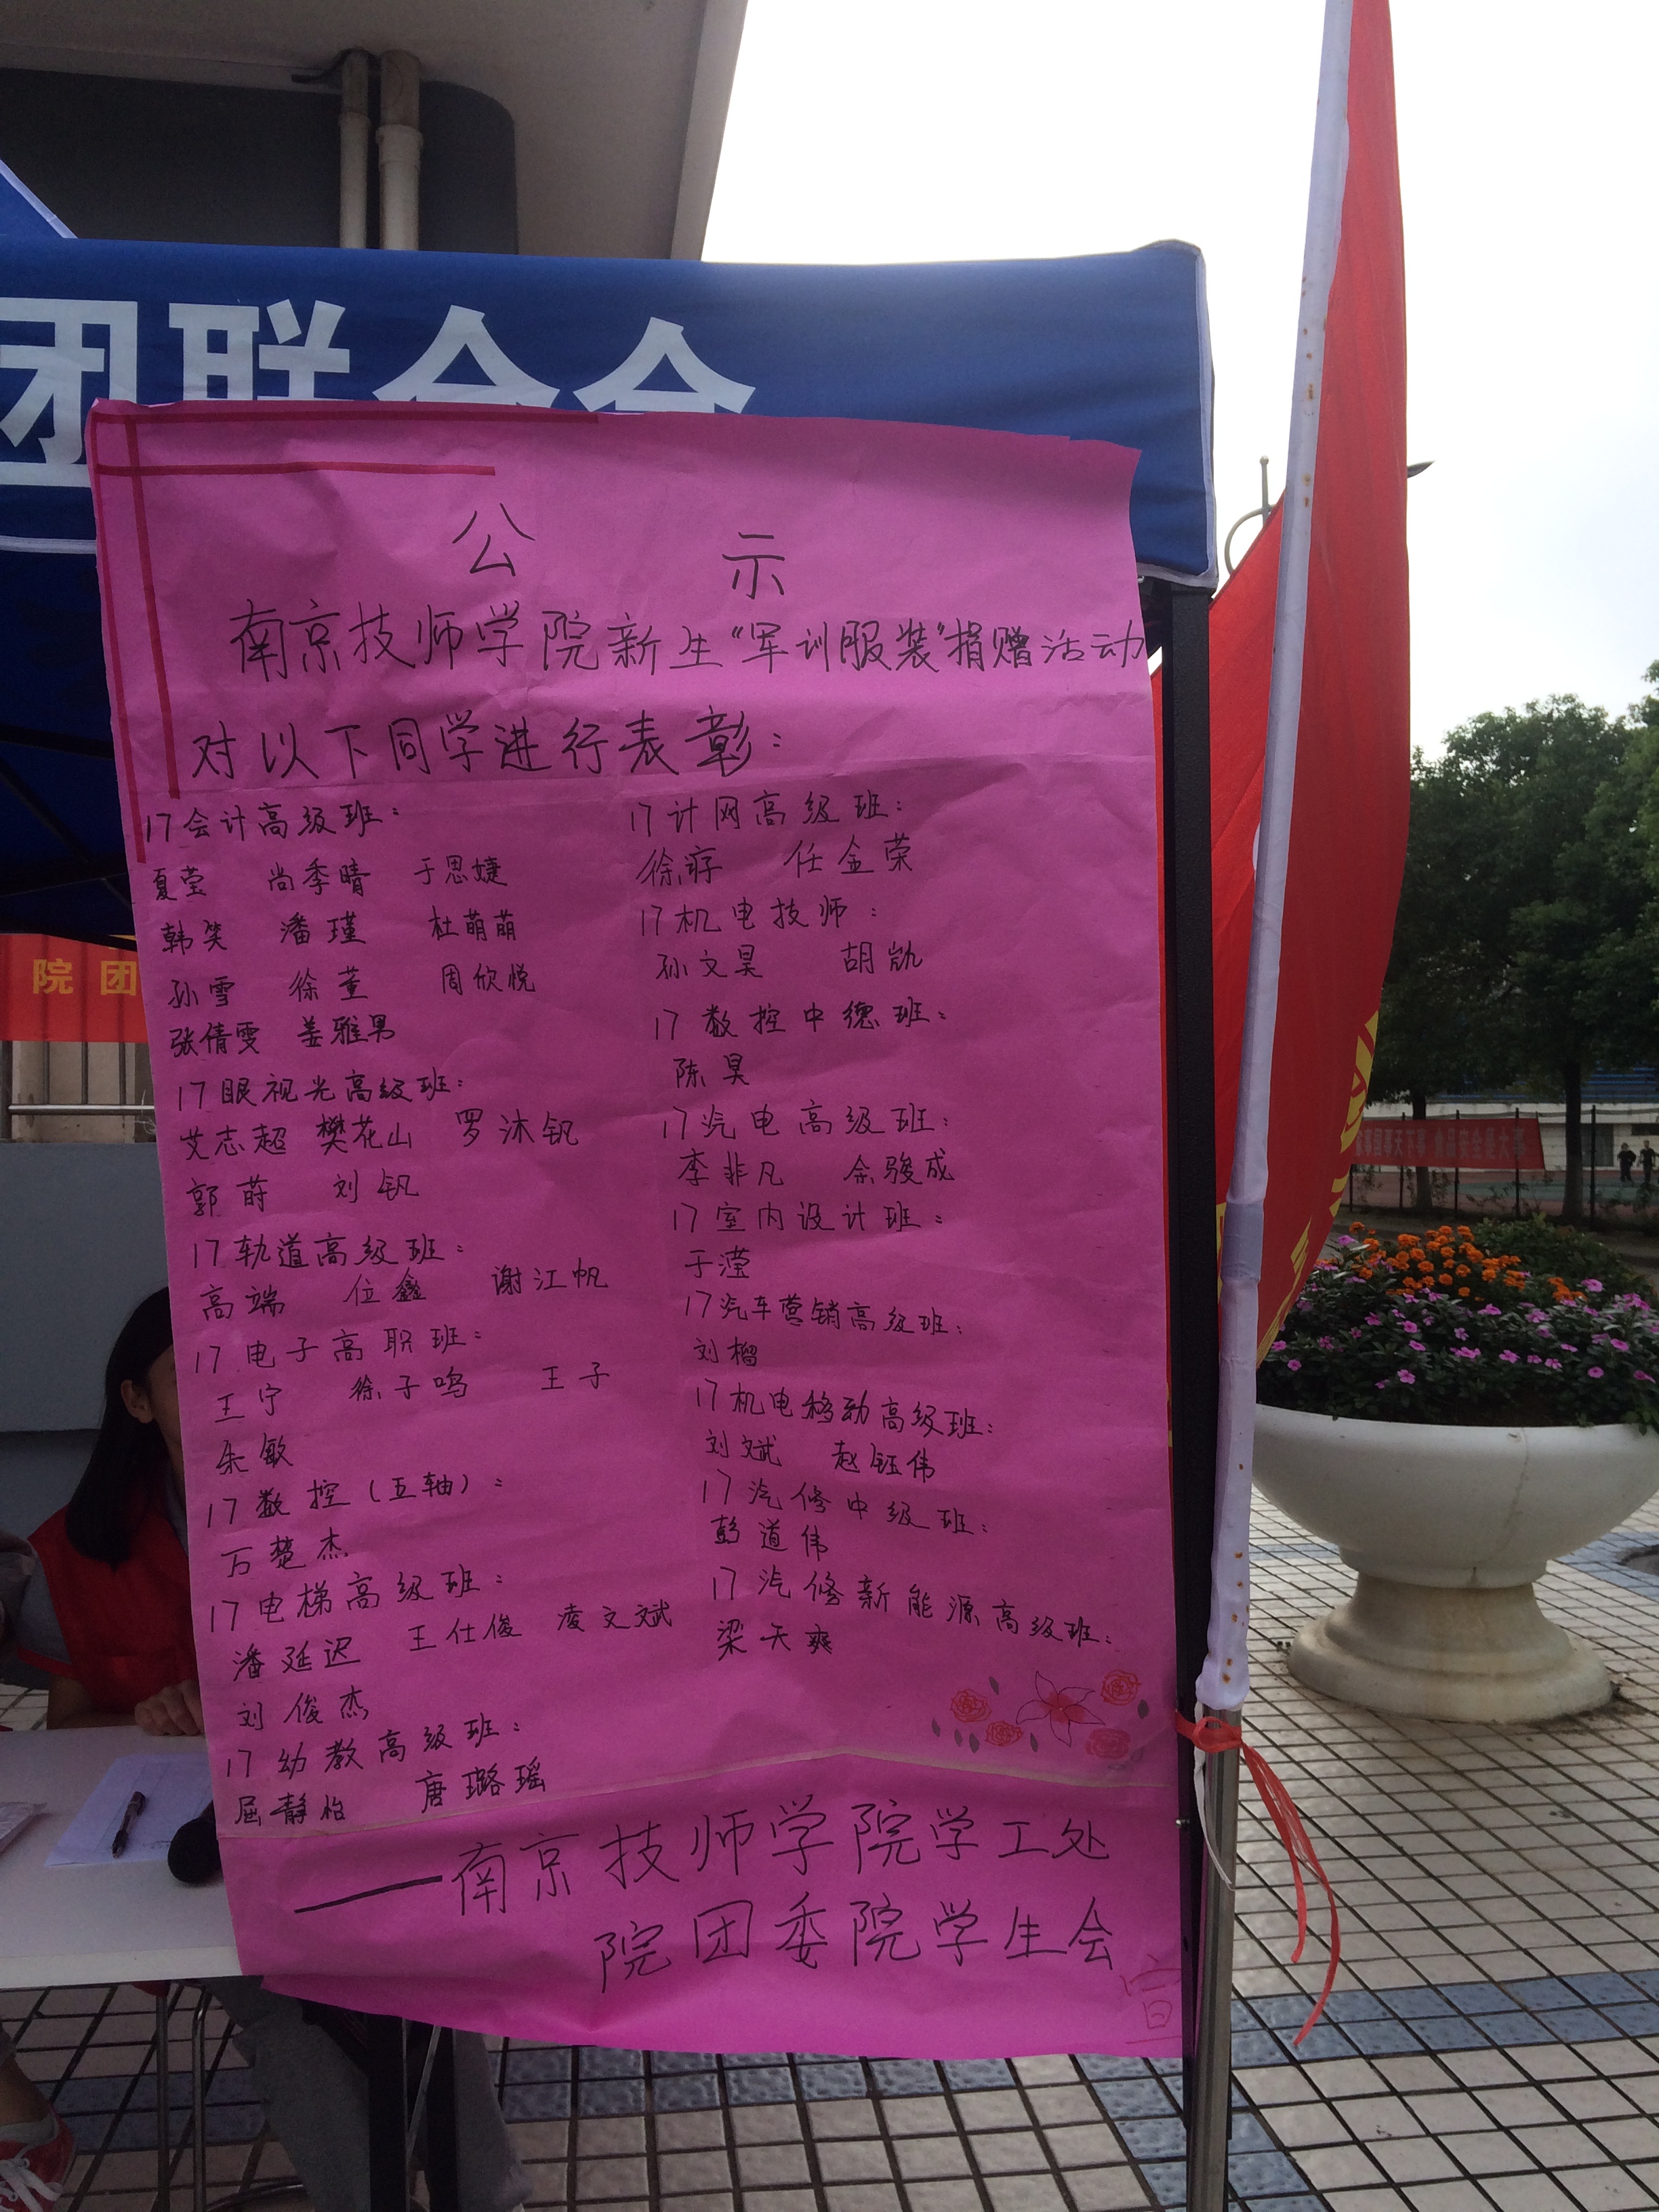 团联合会
院团
公 示
南京技师学院新生“军训服装”捐赠活动
对以下同学进行表彰：
17会计高级班：
夏莹 尚季晴 于思婕
韩笑 潘瑾 杜萌萌
孙雪 徐萱 周欣悦
张倩雯 姜雅男
17眼视光高级班：
艾志超 樊花山 罗沐钒
郭莳 刘钒
17轨道高级班：
高端 位鑫 谢江帆
17电子高职班：
王宁 徐子鸣 王子
朱敏
17数控（五轴）：
万楚杰
17电梯高级班：
潘延迟 王仕俊 凌文斌
刘俊杰
17幼教高级班：
屈静怡 唐璐瑶
17计网高级班：
徐游 任金荣
17机电技师：
孙文昊 胡凯
17数控中德班：
陈昊
17汽电高级班：
李非凡 余骏成
17室内设计班：
于滢
17汽车营销高级班：
刘榴
17机电移动高级班：
刘斌 赵钰伟
17汽修中级班：
彭道伟
17汽修新能源高级班：
梁天爽
——南京技师学院学工处
院团委院学生会
宣